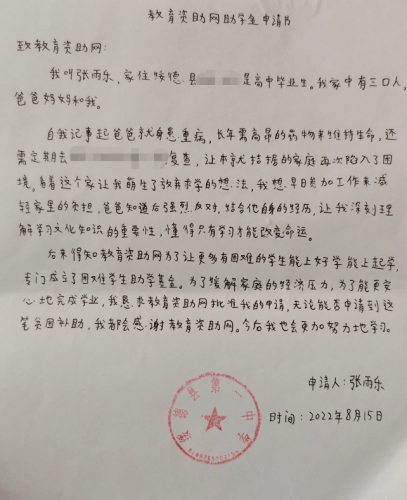 教育资助网助学金申请书
致教育资助网：
我叫张雨乐，家住绥德县 是高中毕业生。我家中有三口人，
爸爸妈妈和我。
自我记事起爸爸就身患重病，长年需高昂的药物来维持生命，还
需定期去 复查，让本就拮据的家庭再次陷入了困
境。看着这个家让我萌生了放弃求学的想法，我想早日参加工作来减
轻家里的负担，爸爸知道后强烈反对，结合他自身的经历，让我深刻理
解学习文化知识的重要性，懂得只有学习才能改变命运。
后来得知教育资助网为了让更多有困难的学生能上好学能上起学，
专门成立了困难学生助学基金。为了缓解家庭的经济压力，为了能更安
心地完成学业，我恳求教育资助网批准我的申请，无论能否申请到这
笔贫困补助，我都会感谢教育资助网。今后我也会更加努力地学习。
申请人：张雨乐
时间：2022年8月15日
绥德县第一中学